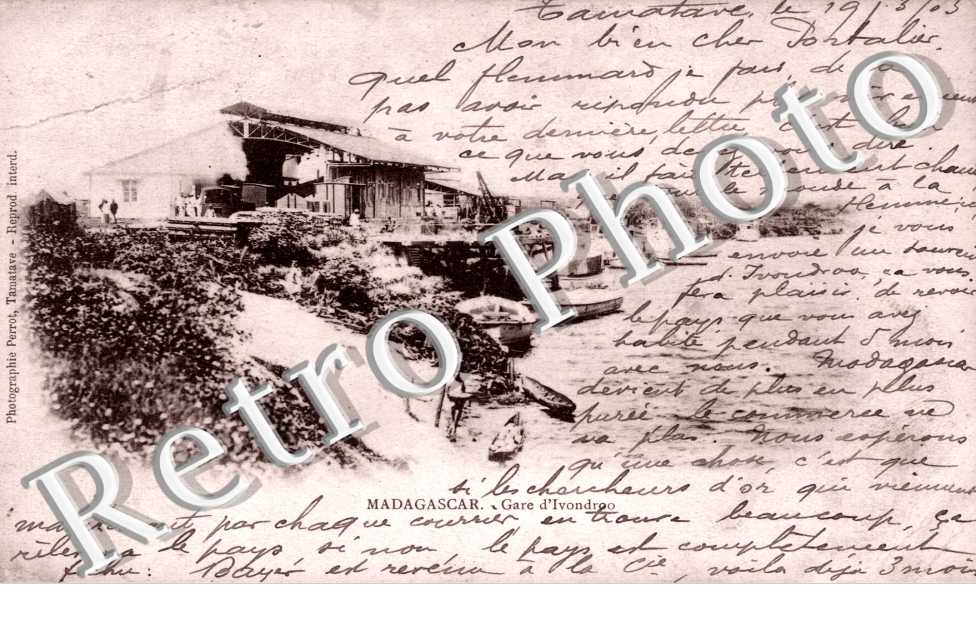 Tamatave, le 19/3/03
Mon bien cher Portalier,
Quel flemmard je fais, de ne
pas avoir répondu plus
à votre dernière lettre, c'est bien
ce que vous devez vous dire.
Mais il fait tellement chaud
le monde a la
flemme.
je vous
envoie un
d'Ivondroo, ça vous
fera plaisir de revoir
le pays que vous avez
habité pendant 5 mois
avec nous. Madagascar
devient de plus en plus
purée. Le commerce ne
va plus. Nous espérons
qu'une chose, c'est que
si les chercheurs d'or qui viennent
par chaque courrier, en trouve beaucoup, ça
le pays, si non, le pays est complètement
est revenu à la Cie, voilà déjà 3 mois
MADAGASCAR. - Gare d'Ivondroo
Photographie Perrot, Tamatave - Reprod interd.
Retro Photo